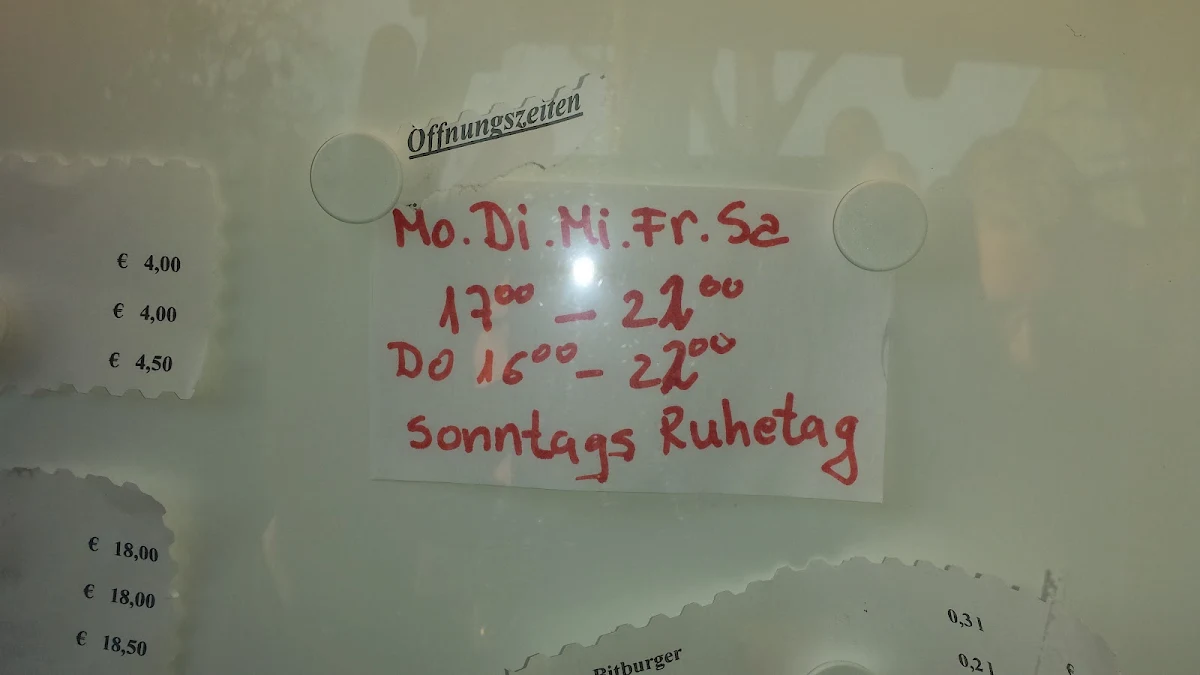 Öffnungszeiten
Mo. Di. Mi. Fr. Sa
17⁰⁰ – 22⁰⁰
DO 16⁰⁰ – 22⁰⁰
sonntags Ruhetag
€ 4,00
€ 4,00
€ 4,50
€ 18,00
€ 18,00
€ 18,50
Bitburger
0,3 l
0,2 l
€